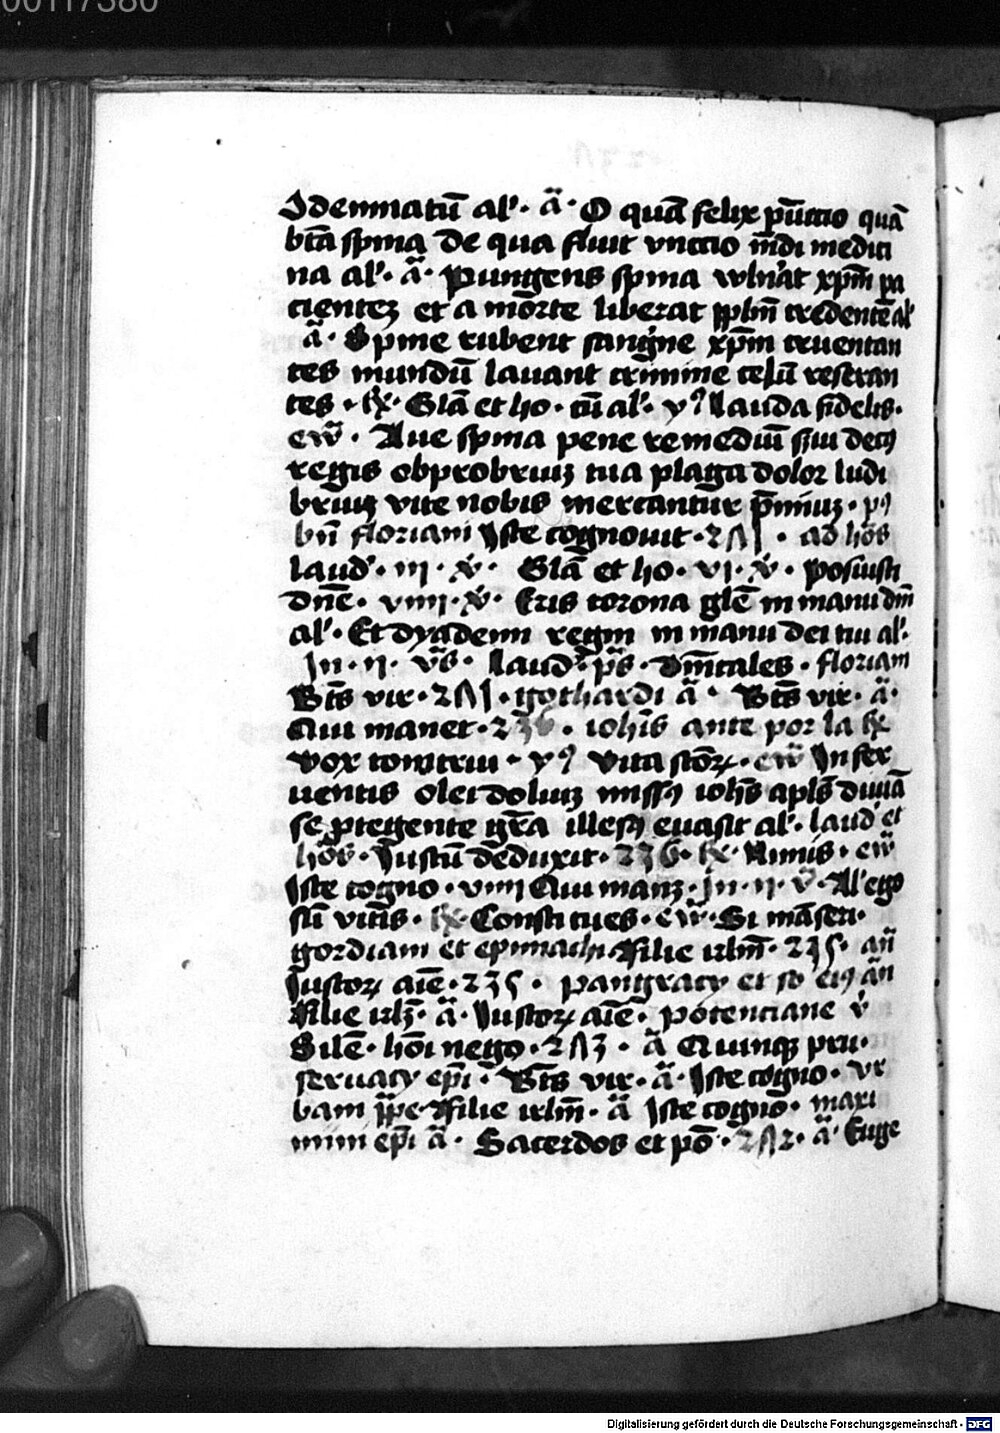 00117380
Idemnatū al'. ā. O quā felix pūctio quā
btā spina de qua fluit vnctio mēdi medici
na al'. ā. Pungens spina wlnāt xp̄m pa
cientez et a mōrte liberat pplm̄ credentē al'
ā. Spine rubent sangīne xp̄m cruentan
tes mundū lauant crimine celū reseran
tes . Rx. Glā et ho . tū al'. v̉ Lauda fidelis.
ew̄. Aue spina pene remediū siu decꝯ
regis obprobriuz tua plaga dolor ludi
briuz vite nobis mercantur p̄miuz . pꝯ
bn̄ floriani Iste cognouit . 2Λ1 . ad hōs
laud'. iii . x̄. Glā et ho . vi . x̄. posuisti
dn̄e . viiii . x̄. Eris corona glē in manu dm̄
al'. Et dyademi regni in manu dei tui al'.
In . ii . v̄s . laud' . p̄s . dn̄icales . floriani
Bt̄s vir . 2Λ1 . gothardi ā. Bt̄s vir . ā.
Qui manet . 236 . ioh̄is ante por la Rx
vox tonitrui . v̉ Vita sc̄oꝝ . ew̄ In fer
uentis olei doliuz missꝯ ioh̄s apl̄s diuiā
se ptegente gr̄a illesꝯ euasit al'. laud' et
hōs . Iustū deduxit . 236 . Rx Nimis . ew̄
Iste cogno . viiii Qui manz . in . ii . v̄ . Al' ego
sū vitis . Rx Constitues . ew̄ . Si māseri .
gordiani et epimachi Filie irlm̄ . 235 . an̄
Iustoꝝ aīe . 235 . pangracy et so' eiꝯ ān
Filie irlz̄ . ā . Iustoꝝ aīe . potenciane v̄
Silē . hōi nego . 2Λ3 . ā Quinqꝫ pru .
seruacy ep̄i . Bt̄s vir . ā . Iste cogno . vr
bani pp̄e Filie irlm̄ . ā Iste cognō . maxi
mini ep̄i ā . Sacerdos et pō . 2Λ2 . ā . Euge
Digitalisierung gefördert durch die Deutsche Forschungsgemeinschaft - DFG